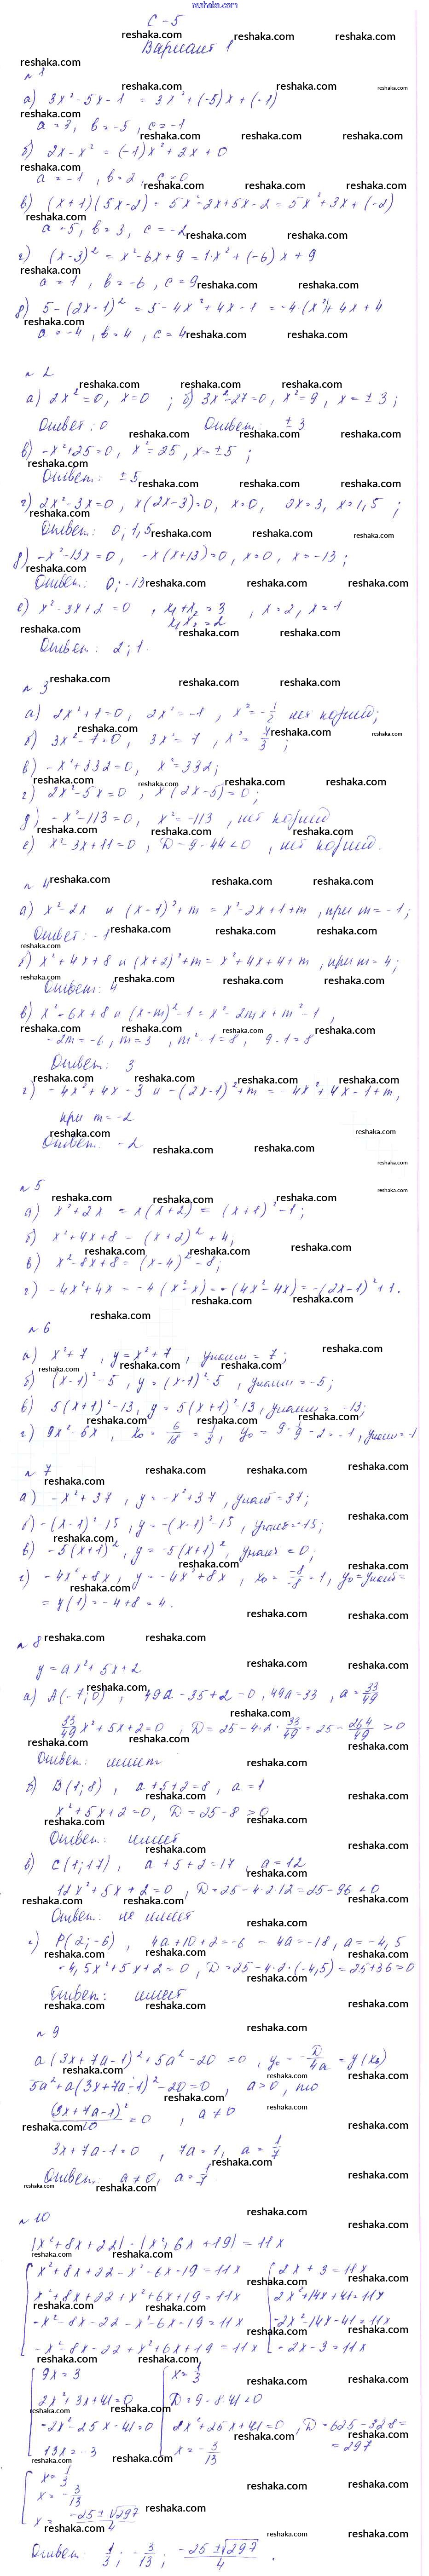 reshaka.com
С-5
Вариант 1
№1
а) 3x² - 5x - 1 = 3x² + (-5)x + (-1)
a = 3, b = -5, c = -1
б) 2x - x² = (-1)x² + 2x + 0
a = -1, b = 2, c = 0
в) (x+1)(5x-2) = 5x² - 2x + 5x - 2 = 5x² + 3x + (-2)
a = 5, b = 3, c = -2
г) (x-3)² = x² - 6x + 9 = 1·x² + (-6)x + 9
a = 1, b = -6, c = 9
д) 5 - (2x-1)² = 5 - 4x² + 4x - 1 = -4·(x²) + 4x + 4
a = -4, b = 4, c = 4
№2
а) 2x² = 0, x = 0 ; б) 3x² - 27 = 0, x² = 9, x = ± 3 ;
Ответ: 0 Ответ: ± 3
в) -x² + 25 = 0, x² = 25, x = ± 5 ;
Ответ: ± 5
г) 2x² - 3x = 0, x(2x-3) = 0, x = 0, 2x = 3, x = 1,5 ;
Ответ: 0; 1,5
д) -x² - 13x = 0, -x(x+13) = 0, x = 0, x = -13 ;
Ответ: 0; -13
е) x² - 3x + 2 = 0, x₁ + x₂ = 3, x = 2, x = 1
x₁x₂ = 2
Ответ: 2; 1.
№3
а) 2x² + 1 = 0, 2x² = -1, x² = -1/2 нет корней;
б) 3x² - 7 = 0, 3x² = 7, x² = 7/3 ;
в) -x² + 332 = 0, x² = 332;
г) 2x² - 5x = 0, x(2x-5) = 0;
д) -x² - 113 = 0, x² = -113, нет корней
е) x² - 3x + 11 = 0, D = 9 - 44 < 0, нет корней.
№4
а) x² - 2x и (x-1)² + m = x² - 2x + 1 + m, при m = -1;
Ответ: -1
б) x² + 4x + 8 и (x+2)² + m = x² + 4x + 4 + m, при m = 4;
Ответ: 4
в) x² - 6x + 8 и (x-m)² - 1 = x² - 2mx + m² - 1,
-2m = -6, m = 3, m² - 1 = 8, 9 - 1 = 8
Ответ: 3
г) -4x² + 4x - 3 и -(2x-1)² + m = -4x² + 4x - 1 + m,
при m = -2
Ответ: -2
№5
а) x² + 2x = x(x+2) = (x+1)² - 1;
б) x² + 4x + 8 = (x+2)² + 4;
в) x² - 8x + 8 = (x-4)² - 8;
г) -4x² + 4x = -4(x² - x) = -(4x² - 4x) = -(2x-1)² + 1.
№6
а) x² + 7, y = x² + 7, yнаим = 7;
б) (x-1)² - 5, y = (x-1)² - 5, yнаим = -5;
в) 5(x+1)² - 13, y = 5(x+1)² - 13, yнаим = -13;
г) 9x² - 6x, x₀ = 6/18 = 1/3, y₀ = 9·1/9 - 2 = -1, yнаим = -1
№7
а) -x² + 37, y = -x² + 37, yнаиб = 37;
б) -(x-1)² - 15, y = -(x-1)² - 15, yнаиб = -15;
в) -5(x+1)², y = -5(x+1)², yнаиб = 0;
г) -4x² + 8x, y = -4x² + 8x, x₀ = -8/-8 = 1, y₀ = yнаиб =
= y(1) = -4 + 8 = 4.
№8
y = ax² + 5x + 2
а) A(-7; 0), 49a - 35 + 2 = 0, 49a = 33, a = 33/49
33/49 x² + 5x + 2 = 0, D = 25 - 4·2·33/49 = 25 - 264/49 > 0
Ответ: имеет
б) B(1; 8), a + 5 + 2 = 8, a = 1
x² + 5x + 2 = 0, D = 25 - 8 > 0
Ответ: имеет
в) C(1; 17), a + 5 + 2 = 17, a = 12
12x² + 5x + 2 = 0, D = 25 - 4·2·12 = 25 - 96 < 0
Ответ: не имеет
г) P(2; -6), 4a + 10 + 2 = -6 - 4a = -18, a = -4,5
-4,5x² + 5x + 2 = 0, D = 25 - 4·2·(-4,5) = 25 + 36 > 0
Ответ: имеет
№9
a(3x+7a-1)² + 5a² - 20 = 0, y₀ = -D/4a = y(x₀)
5a² + a(3x+7a-1)² - 20 = 0, a > 0, то
(3x+7a-1)²/20 = 0, a ≠ 0
3x + 7a - 1 = 0, 7a = 1, a = 1/7
Ответ: a ≠ 0, a = 1/7
№10
|x² + 8x + 22| - |x² + 6x + 19| = 11x
x² + 8x + 22 - x² - 6x - 19 = 11x 2x + 3 = 11x
x² + 8x + 22 + x² + 6x + 19 = 11x 2x² + 14x + 41 = 11x
-x² - 8x - 22 - x² - 6x - 19 = 11x -2x² - 14x - 41 = 11x
-x² - 8x - 22 + x² + 6x + 19 = 11x -2x - 3 = 11x
9x = 3 x = 1/3
2x² + 3x + 41 = 0 D = 9 - 8·41 < 0
-2x² - 25x - 41 = 0 2x² + 25x + 41 = 0, D = 625 - 328 =
13x = -3 x = -3/13 = 297
x = 1/3
x = -3/13
x = -25 ± √297/4
Ответ: 1/3; -3/13; -25 ± √297/4.